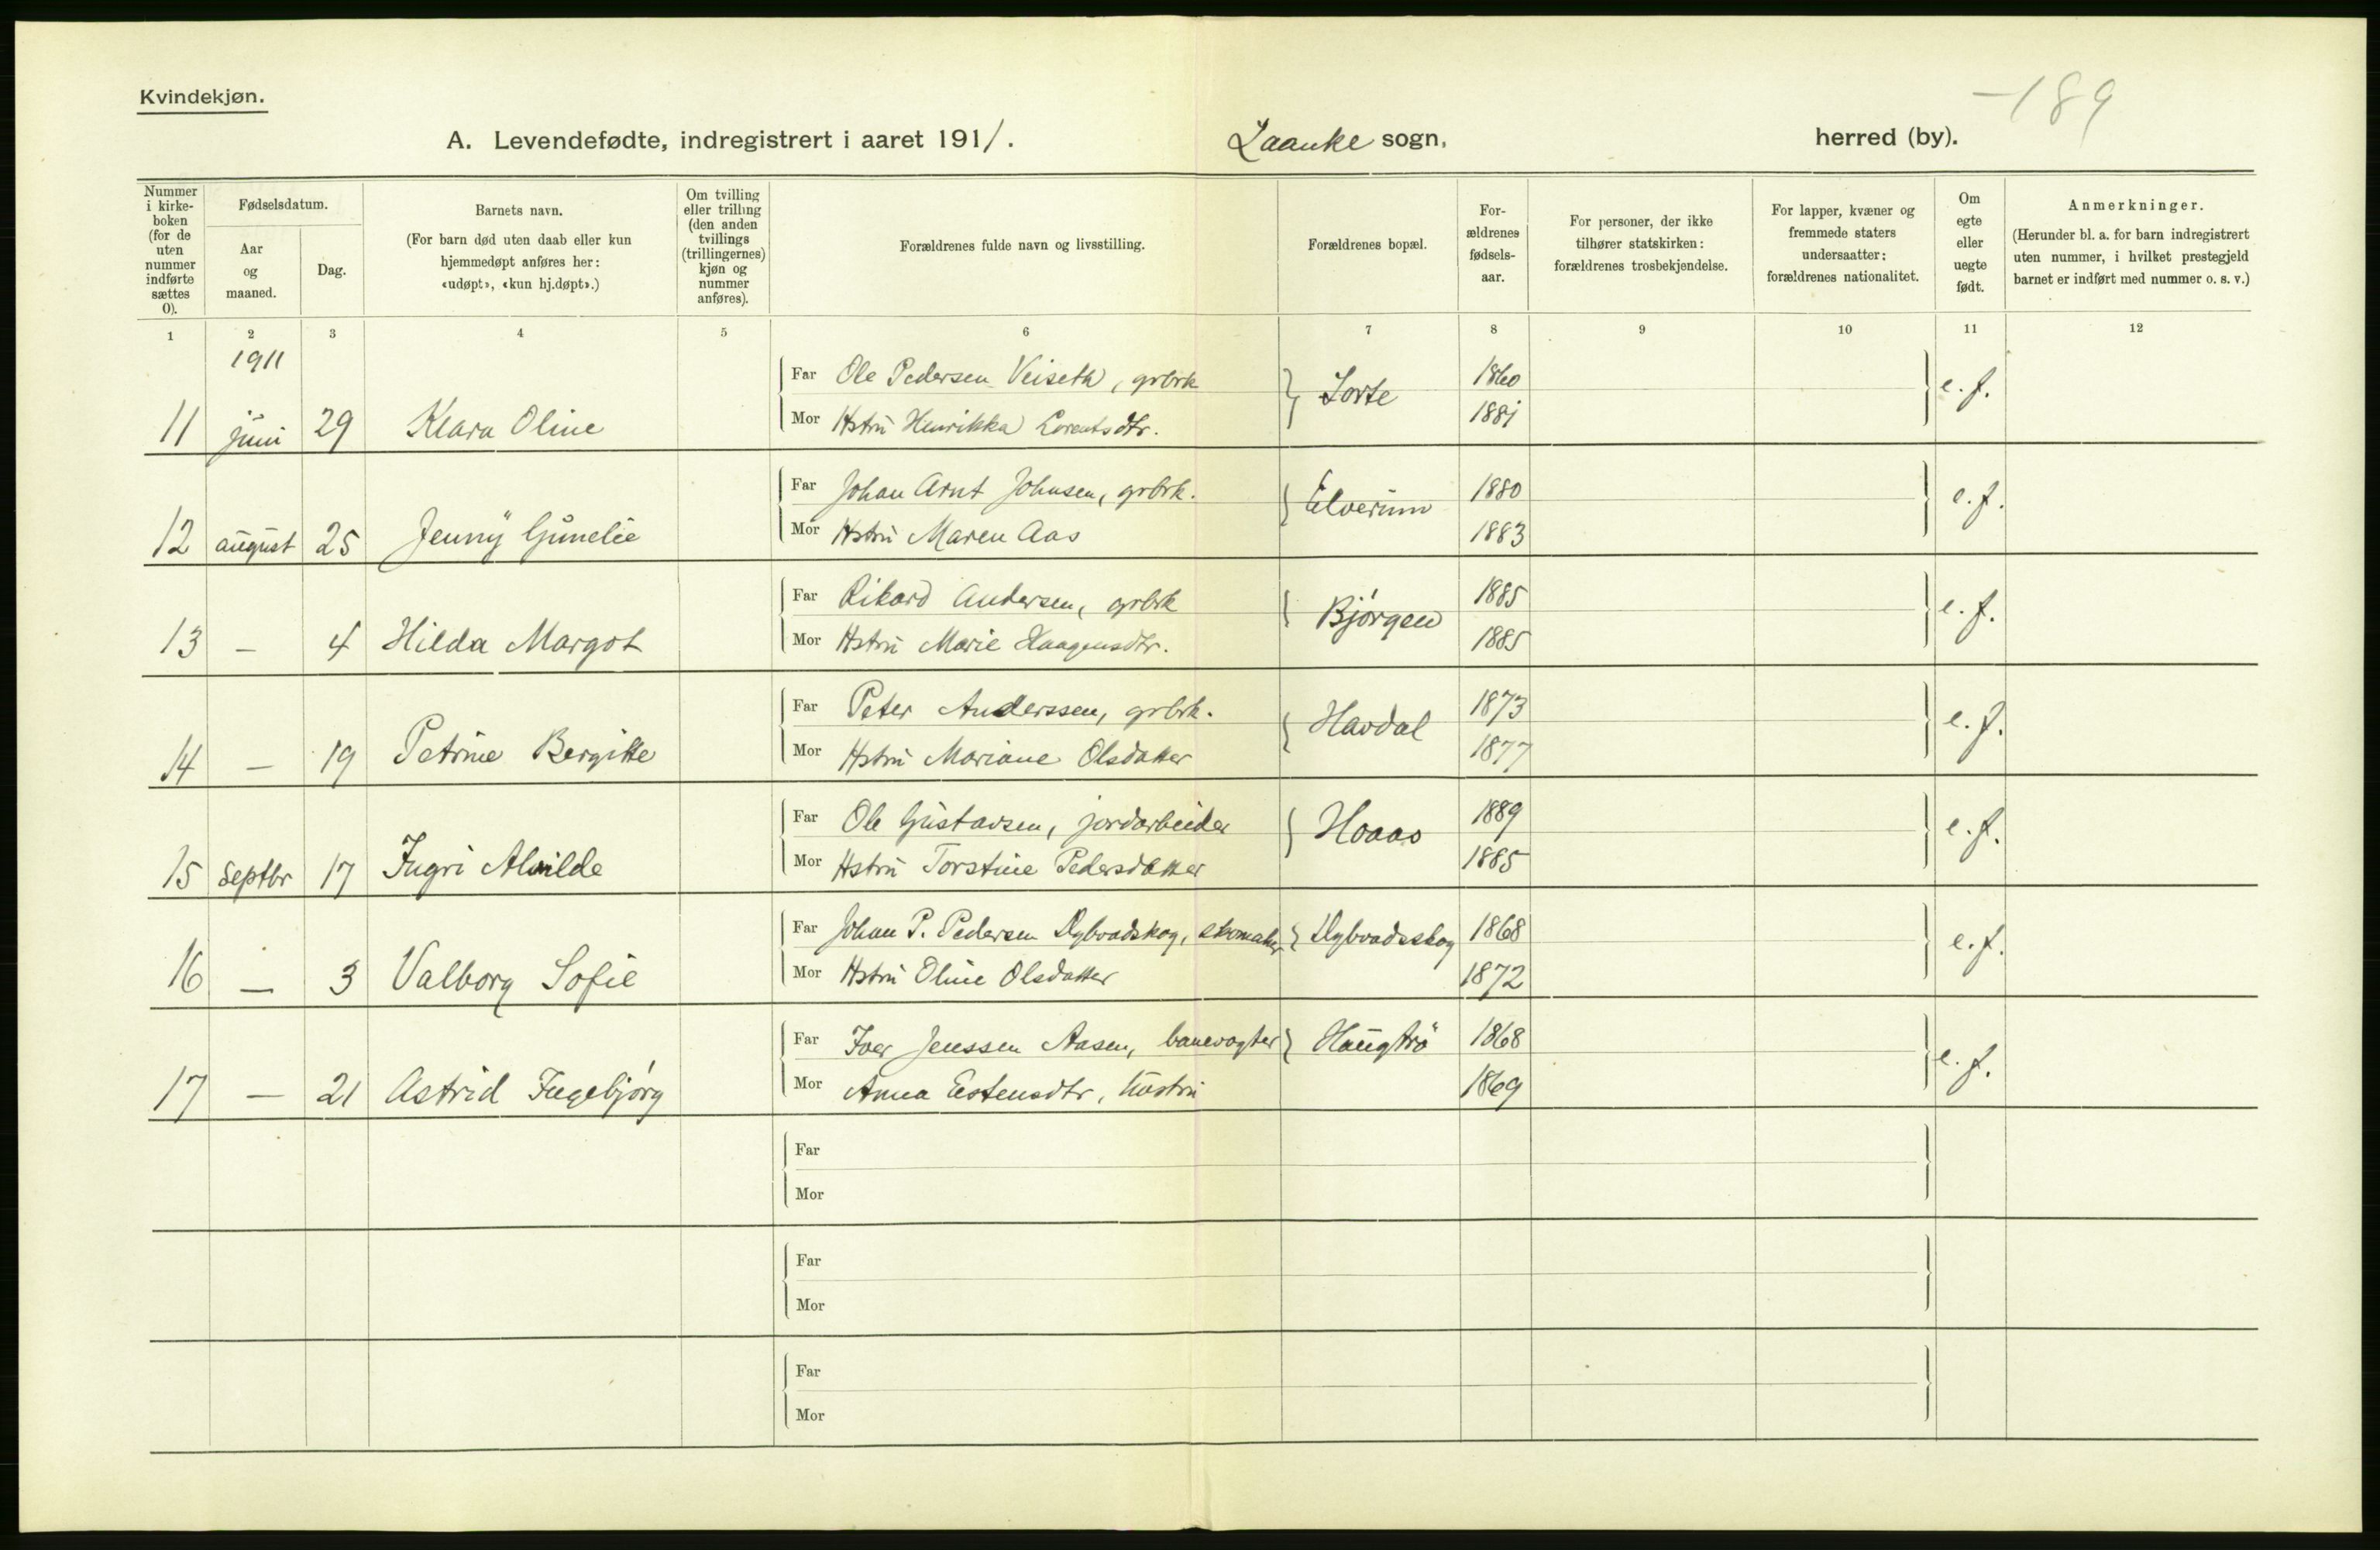 -189
Kvindekjøn.
A. Levendefødte, indregistrert i aaret 1911. Laanke sogn, herred (by).
Nummer i kirkeboken (for de uten nummer indførte sættes 0).
Fødselsdatum.
Aar og maaned.
Dag.
Barnets navn.
(For barn død uten daab eller kun hjemmedøpt anføres her: «udøpt», «kun hj.døpt».)
Om tvilling eller trilling (den anden tvillings (trillingernes) kjøn og nummer anføres).
Forældrenes fulde navn og livsstilling.
Forældrenes bopæl.
Forældrenes fødselsaar.
For personer, der ikke tilhører statskirken: forældrenes trosbekjendelse.
For lapper, kvæner og fremmede staters undersaatter: forældrenes nationalitet.
Om egte eller uegte født.
Anmerkninger.
(Herunder bl. a. for barn indregistrert uten nummer, i hvilket prestegjeld barnet er indført med nummer o. s. v.)
1 2 3 4 5 6 7 8 9 10 11 12
1911
Far Ole Pedersen Veiseth, grbrk 1860
11 juni 29 Klara Oline Lorte e. f.
Mor Hstru Henrikka Lorentsdtr. 1881
Far Johan Arnt Johnsen, grbrk. 1880
12 august 25 Jenny Gunelie Elverum e. f.
Mor Hstru Maren Aas 1883
Far Rikard Andersen, grbrk 1885
13 — 4 Hilda Margot Bjørgen e. f.
Mor Hstru Marie Haagensdtr. 1885
Far Peter Anderssen, grbrk. 1873
14 — 19 Petrine Bergitte Havdal e. f.
Mor Hstru Mariane Olsdatter 1877
Far Ole Gustavsen, jordarbeider 1889
15 Septbr 17 Ingri Alvilde Hoaas e. f.
Mor Hstru Torstine Pedersdatter 1885
Far Johan P. Pedersen Dybvadskog, skomaker Dybvadsskog 1868
16 — 3 Valborg Sofie e. f.
Mor Hstru Oline Olsdatter 1872
Far Iver Jenssen Aasen, banevogter Haugtrø 1868
17 — 21 Astrid Ingebjørg e. f.
Mor Anna Estensdtr, hustru 1869
Far
Mor
Far
Mor
Far
Mor